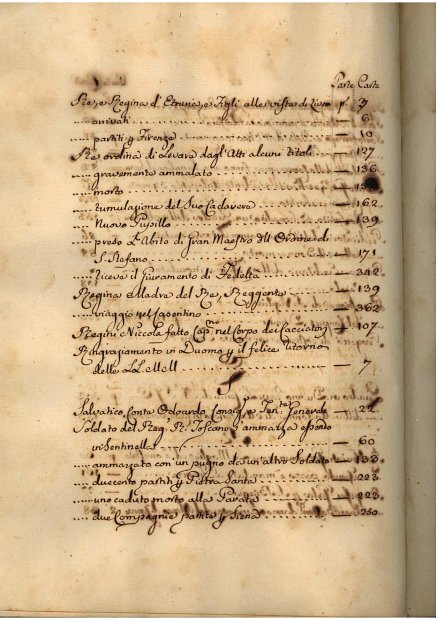 Parte Carte
Re, e Regina d'Etruria, e Figli alla vista di Livor. p. 3
.... arrivati .... 6
.... partiti p Firenze .... 10
Re ordina di Levare dagl'Atti alcuni titoli — 127
.... gravemente ammalato .... — 136
.... morto ....
.... tumulazione del Suo Cadavere .... — 162
.... Nuovo Pupillo .... — 139
.... prese L'Abito di Gran Maestro dell Ordine di
S. Stefano .... — 171
.... riceve il Giuramento di Fedeltà .... — 342
Regina Madre del Re, Reggente .... — 139
.... viaggio nel Casentino .... — 362
Regini Niccola fatto Cap.no nel Corpo dei Cacciatori — 107
Ringraziamento in Duomo p il felice ritorno
delle LL. MM .... — 7
S
Salvatico Conte Odoardo Consig. e Ten.te Generale — 22
Soldato del Reg. Rl. Toscano s'ammazza essendo
in Sentinella .... — 60
.... ammazzato con un pugno da un'altro Soldato — 133
.... duecento partiti p Pietra Santa .... — 223
.... uno caduto morto alla Parata .... — 228
.... due Compagnie partite p Siena .... — 250